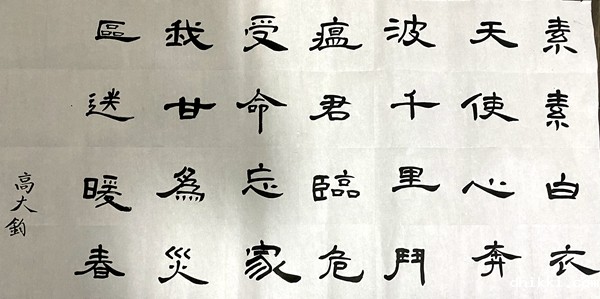 素素白衣
天使心奔
波千里鬥
瘟君臨危
受命忘家
我甘爲災
區送暖春
高大鈞